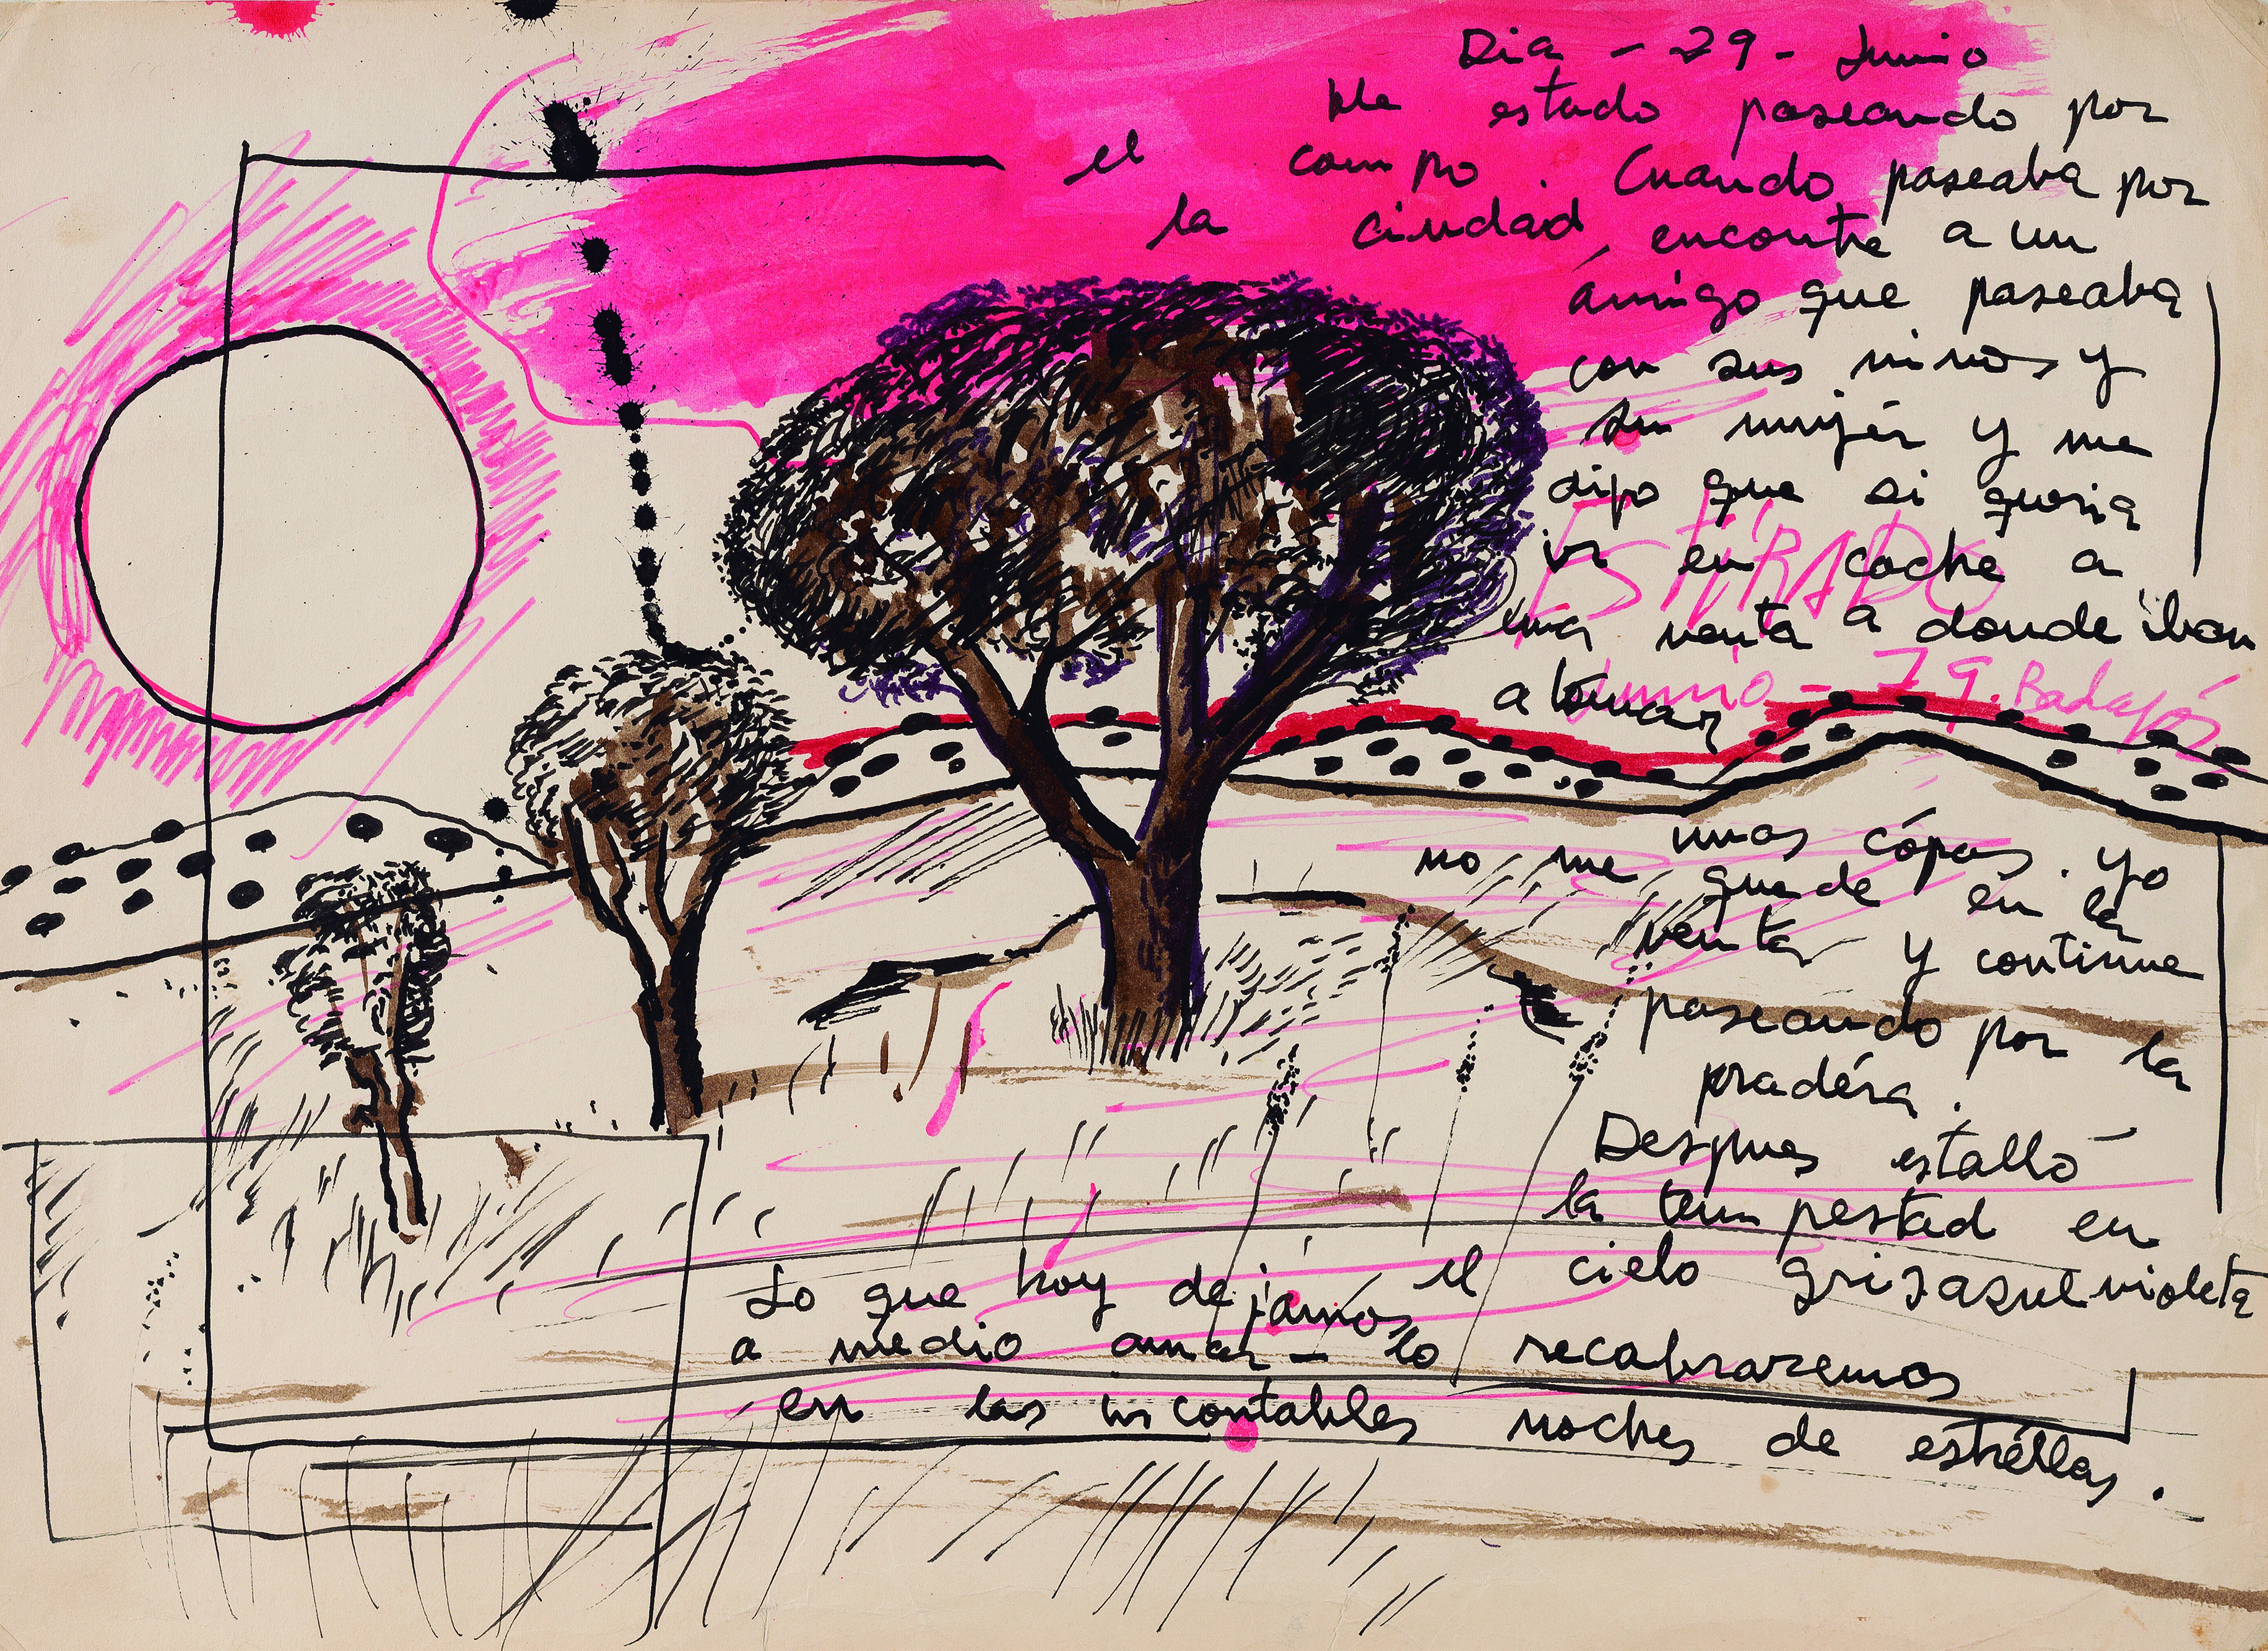 Dia - 29 - Junio
He estado paseando por
el campo. Cuando paseaba por
la ciudad, encontre a un
ámigo que paseaba
con sus ninos y
su mujér y me
dijo que si queria
ir en coche a
una venta a donde iban
a tomar
unas cópas. Yo
no, me quede en la
venta y continue
paseando por la
pradéra.
Despues estalló
la tempestad en
el cielo gris azul violeta
Lo que hoy dejamos
a medio amar - lo recobraremos
en las incontables noches de estréllas.
ESTIRADO
Junio - 79. Badajós